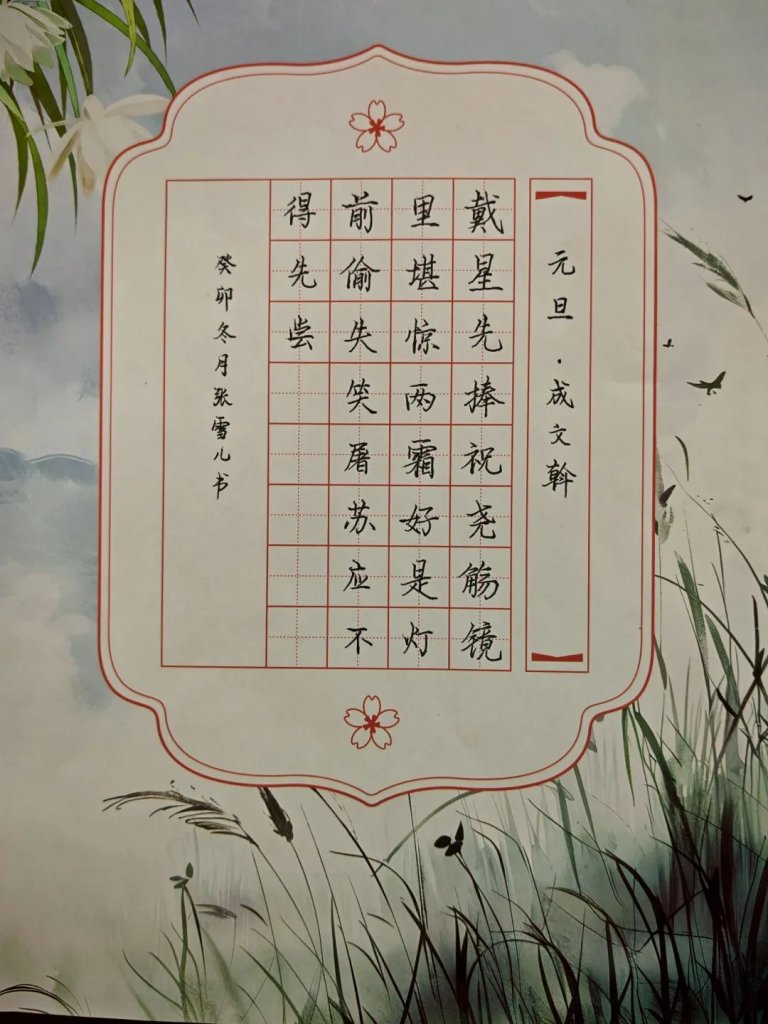 元旦·成文斡
戴星先捧祝尧觞镜
里堪惊两霜好是灯
前偷失笑屠苏应不
得先尝
癸卯冬月张雪儿书